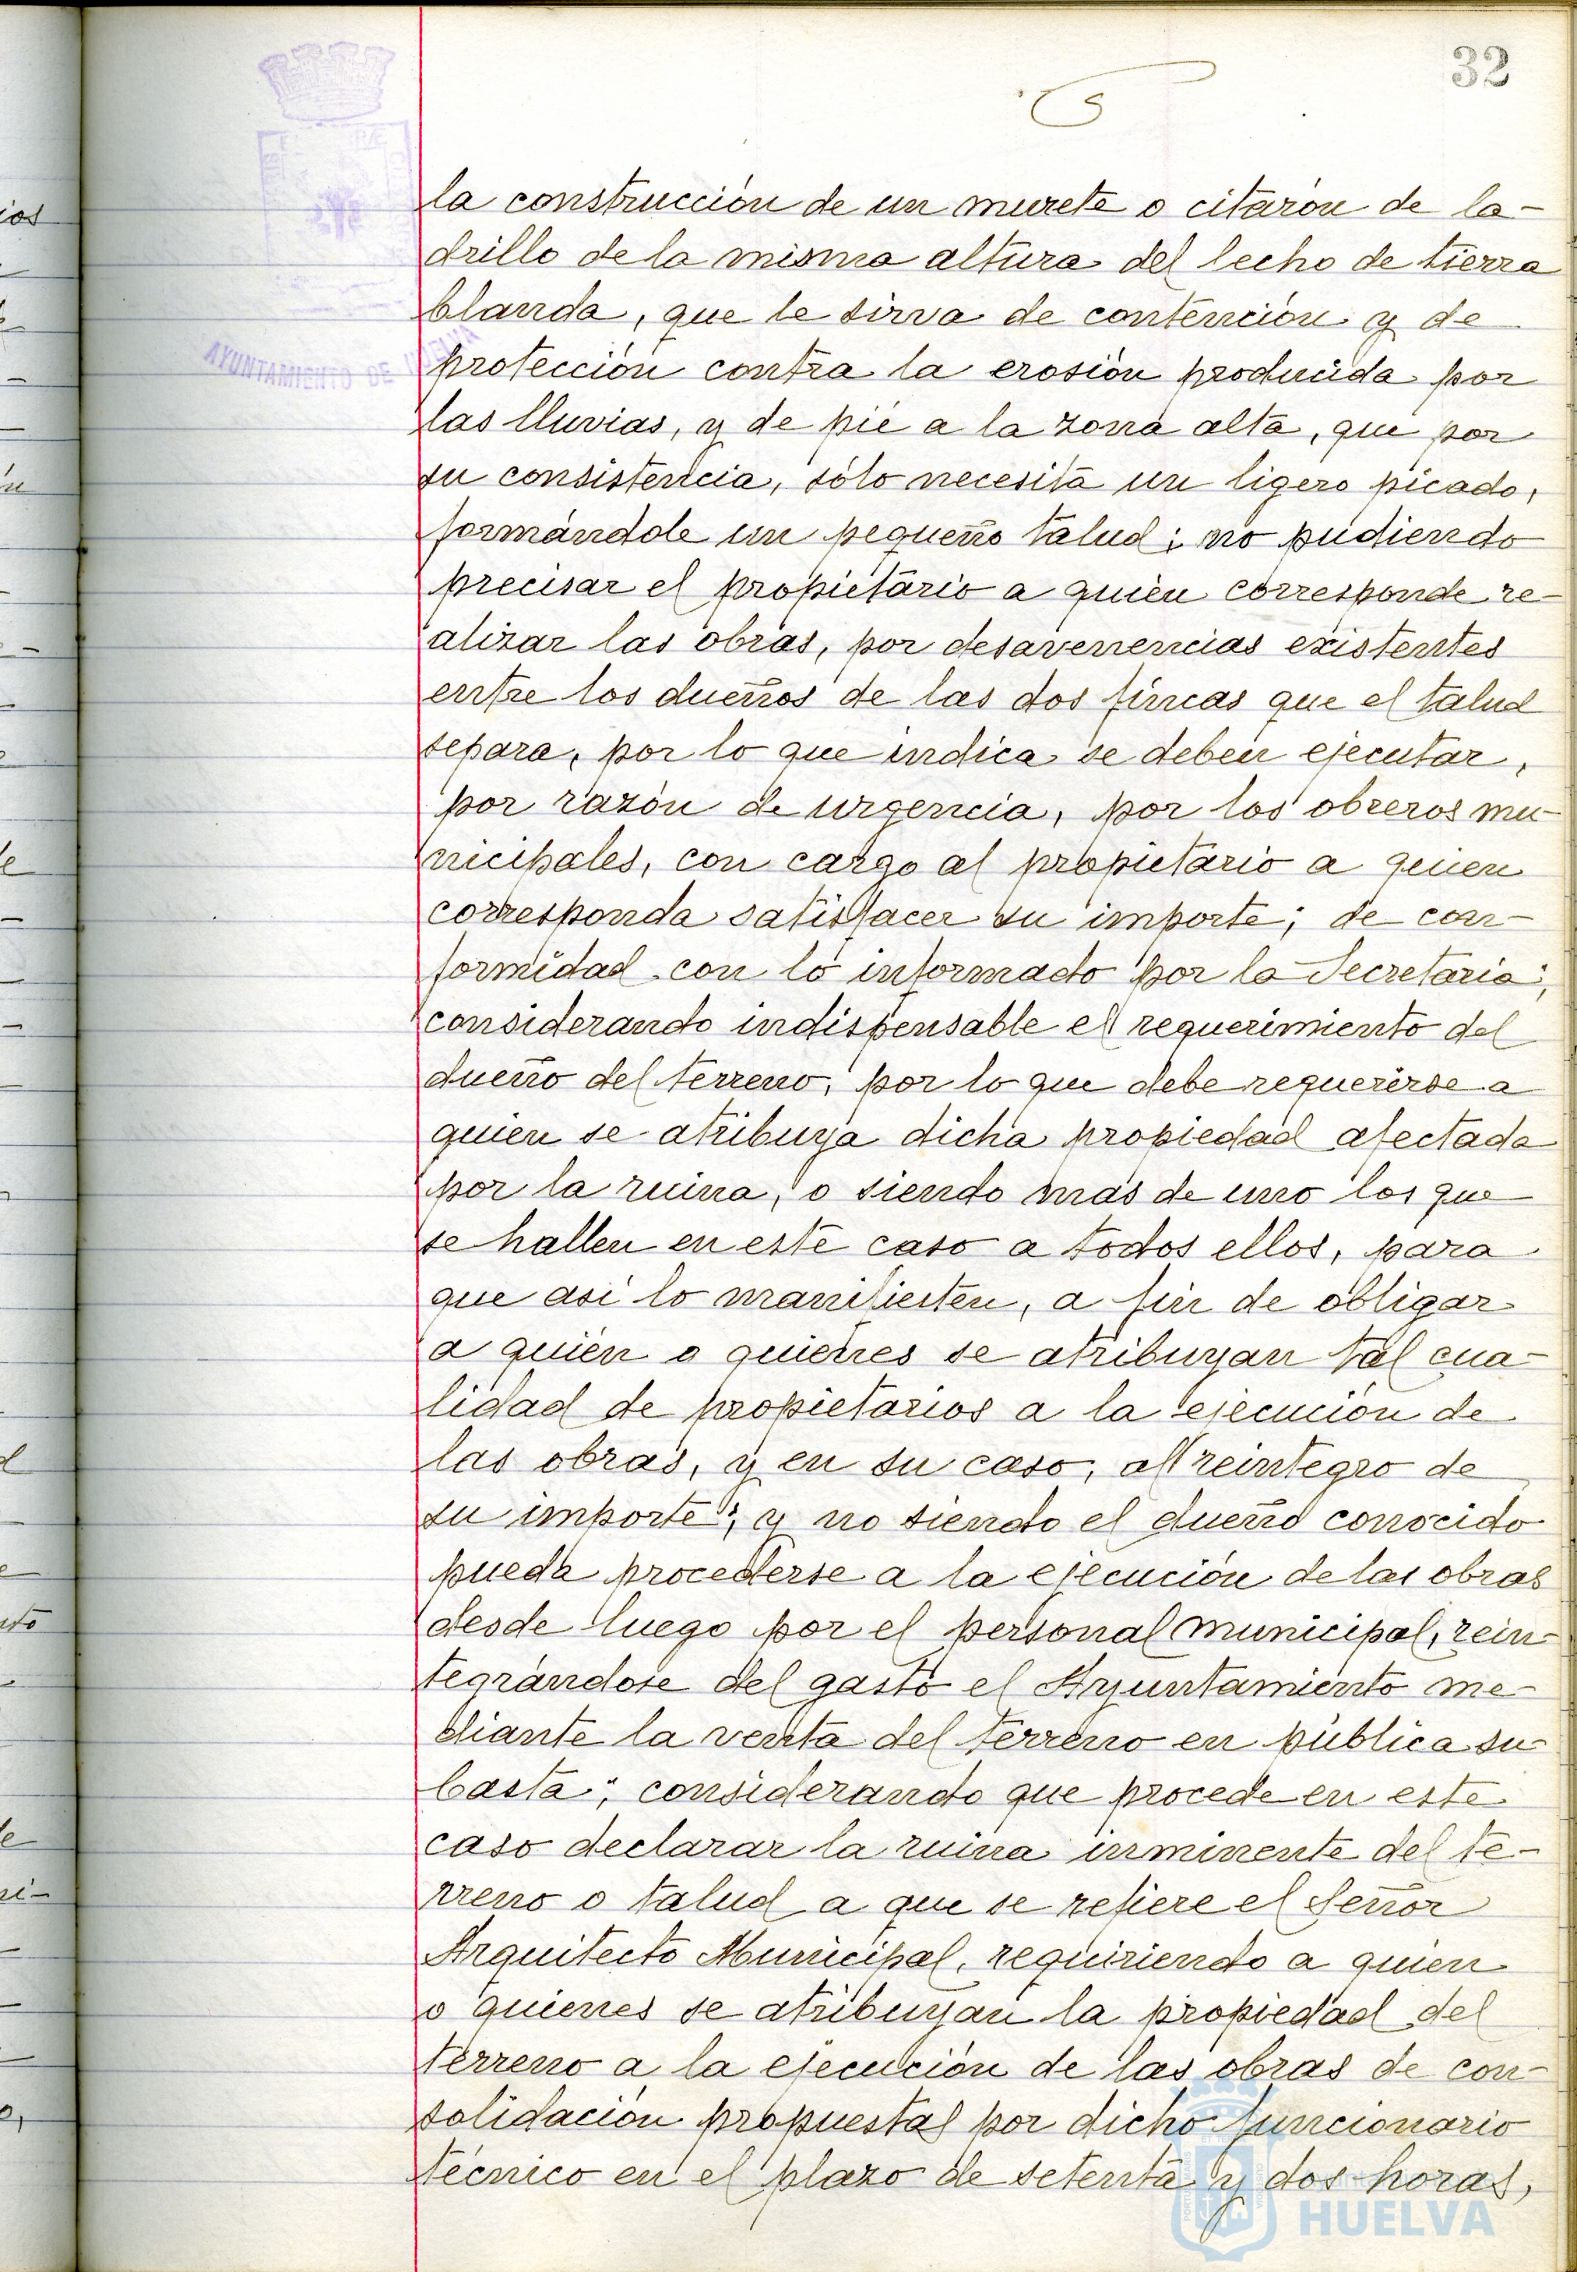 32
la construcción de un murete o citarón de la-
drillo de la misma altura del lecho de tierra
blanda, que le sirva de contención y de
protección contra la erosión producida por
las lluvias, y de pié a la zona alta, que por
su consistencia, sólo necesita un ligero picado,
formándole un pequeño talud; no pudiendo
precisar el propietario a quien corresponde re-
alizar las obras, por desavenencias existentes
entre los dueños de las dos fincas que el talud
separa, por lo que indica se deben ejecutar,
por razón de urgencia, por los obreros mu-
nicipales, con cargo al propietario a quien
corresponda satisfacer su importe; de con-
formidad con lo informado por la Secretaría;
considerando indispensable el requerimiento del
dueño del terreno, por lo que debe requerirse a
quien se atribuya dicha propiedad afectada
por la ruina, o siendo mas de uno los que
se hallen en este caso a todos ellos, para
que así lo manifiesten, a fin de obligar
a quien o quienes se atribuyan tal cua-
lidad de propietarios a la ejecución de
las obras, y en su caso, al reintegro de
su importe; y no siendo el dueño conocido
pueda procederse a la ejecución de las obras
desde luego por el personal municipal, rein-
tegrándose del gasto el Ayuntamiento me-
diante la venta del terreno en pública su-
basta; considerando que procede en este
caso declarar la ruina inminente del te-
rreno o talud a que se refiere el Señor
Arquitecto Municipal, requiriendo a quien
o quienes se atribuyan la propiedad del
terreno a la ejecución de las obras de con-
solidación propuestas por dicho funcionario
técnico en el plazo de setenta y dos horas,
AYUNTAMIENTO DE HUELVA
HUELVA